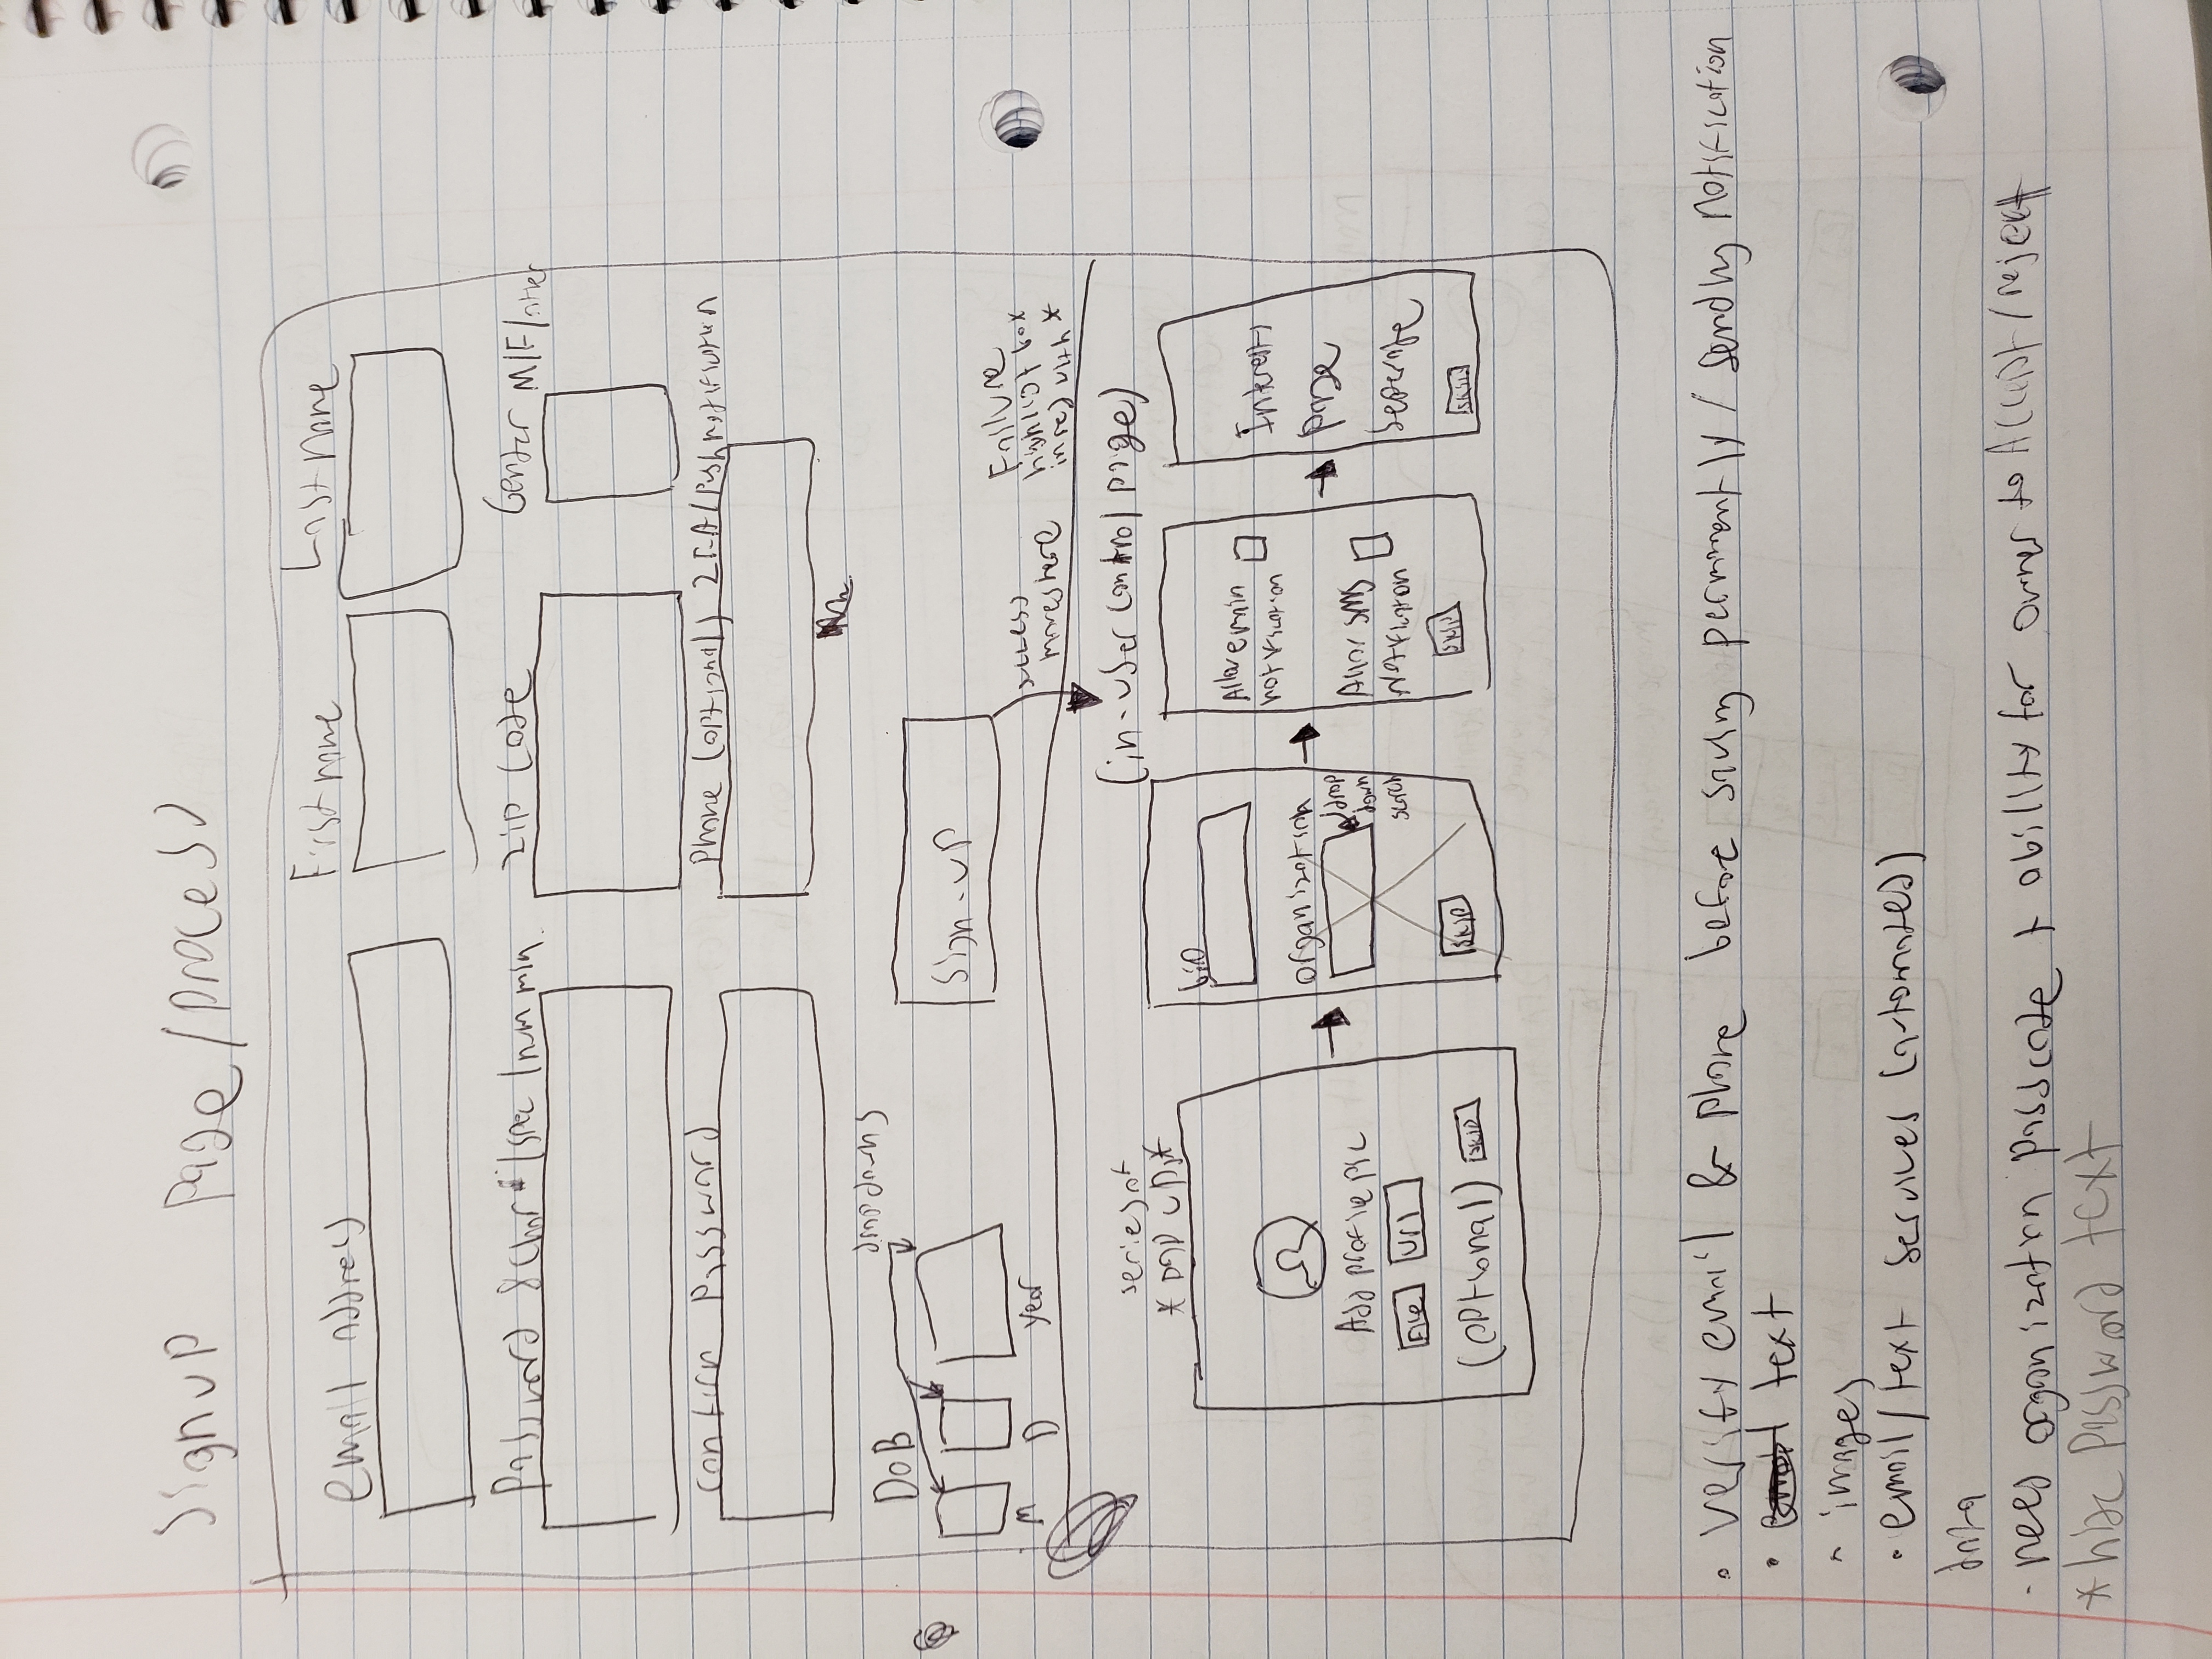 Signup Page/process
email address First name Last name
Password 8 char /spec /num min. Zip Code Gender M/F/other
confirm Password Phone (optional) 2FA/Push notification
DoB dropdowns
M D Year
Sign-up
success
moves here
Failure
highlight box
in red with *
(in-user control page)
series of
*pop ups*
Add profile pic
File url
(optional) skip
bio
organization
drop
down
search
skip
Allow email
notification
Allow SMS
Notification
skip
Interests
page
seperate
skip
• verify email & phone before saving permanently / sending notification
• text
• images
• email/text services (automated)
data
- need organization passcode + ability for owner to Accept/reject
* hide Password text